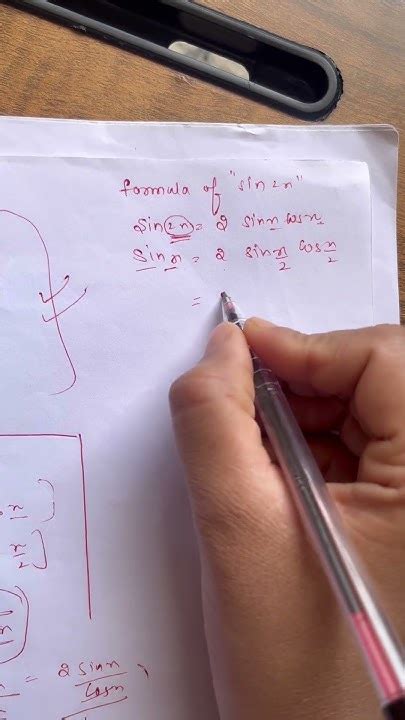 formula of "sin2x"
Sin(2x) = 2 sinx cosx
Sin x = 2 sin x/2 cos x/2
=
x
x/2
= 2 sinx / cosx